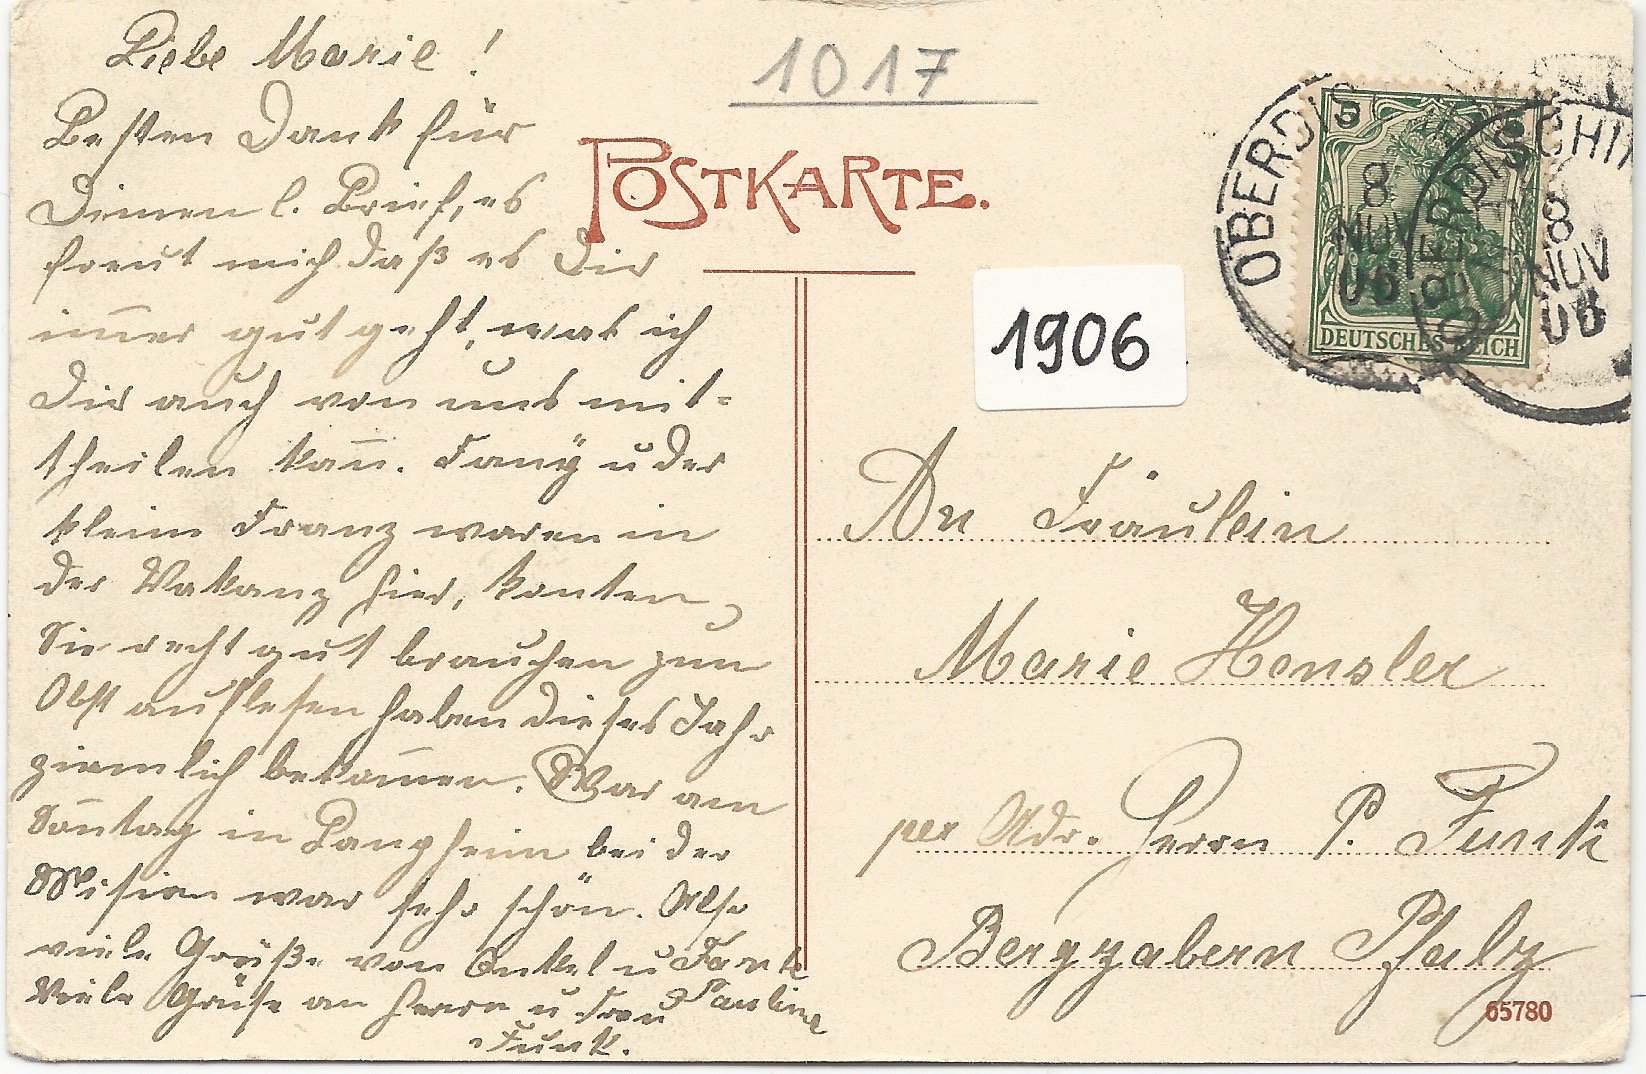 Liebe Marie!
Besten Dank für
Deinen l. Brief, es
freut mich daß es Dir
im̅er gut geht, was ich
Dir auch von uns mit-
theilen kan̅. Fany u der
kleine Franz waren in
der Vakanz hier, konten
Sie recht gut brauchen zum
Obst auflesen haben dieses Jahr
ziemlich bekom̅en. War am
Son̅tag in bei der
Mision war sehr schön. Also
viele Grüße von Onkel u Tante
Pauline
Viele Grüße an Herrn u Frau
Funk.
1017
POSTKARTE.
1906
5 5
DEUTSCHES REICH
OBERDIS
8
NOV
06
OBERDISCHI
8
NOV
06
An Fräulein
Marie Hensler
per Adr. Herrn P. Funk
Bergzabern Pfalz
65780